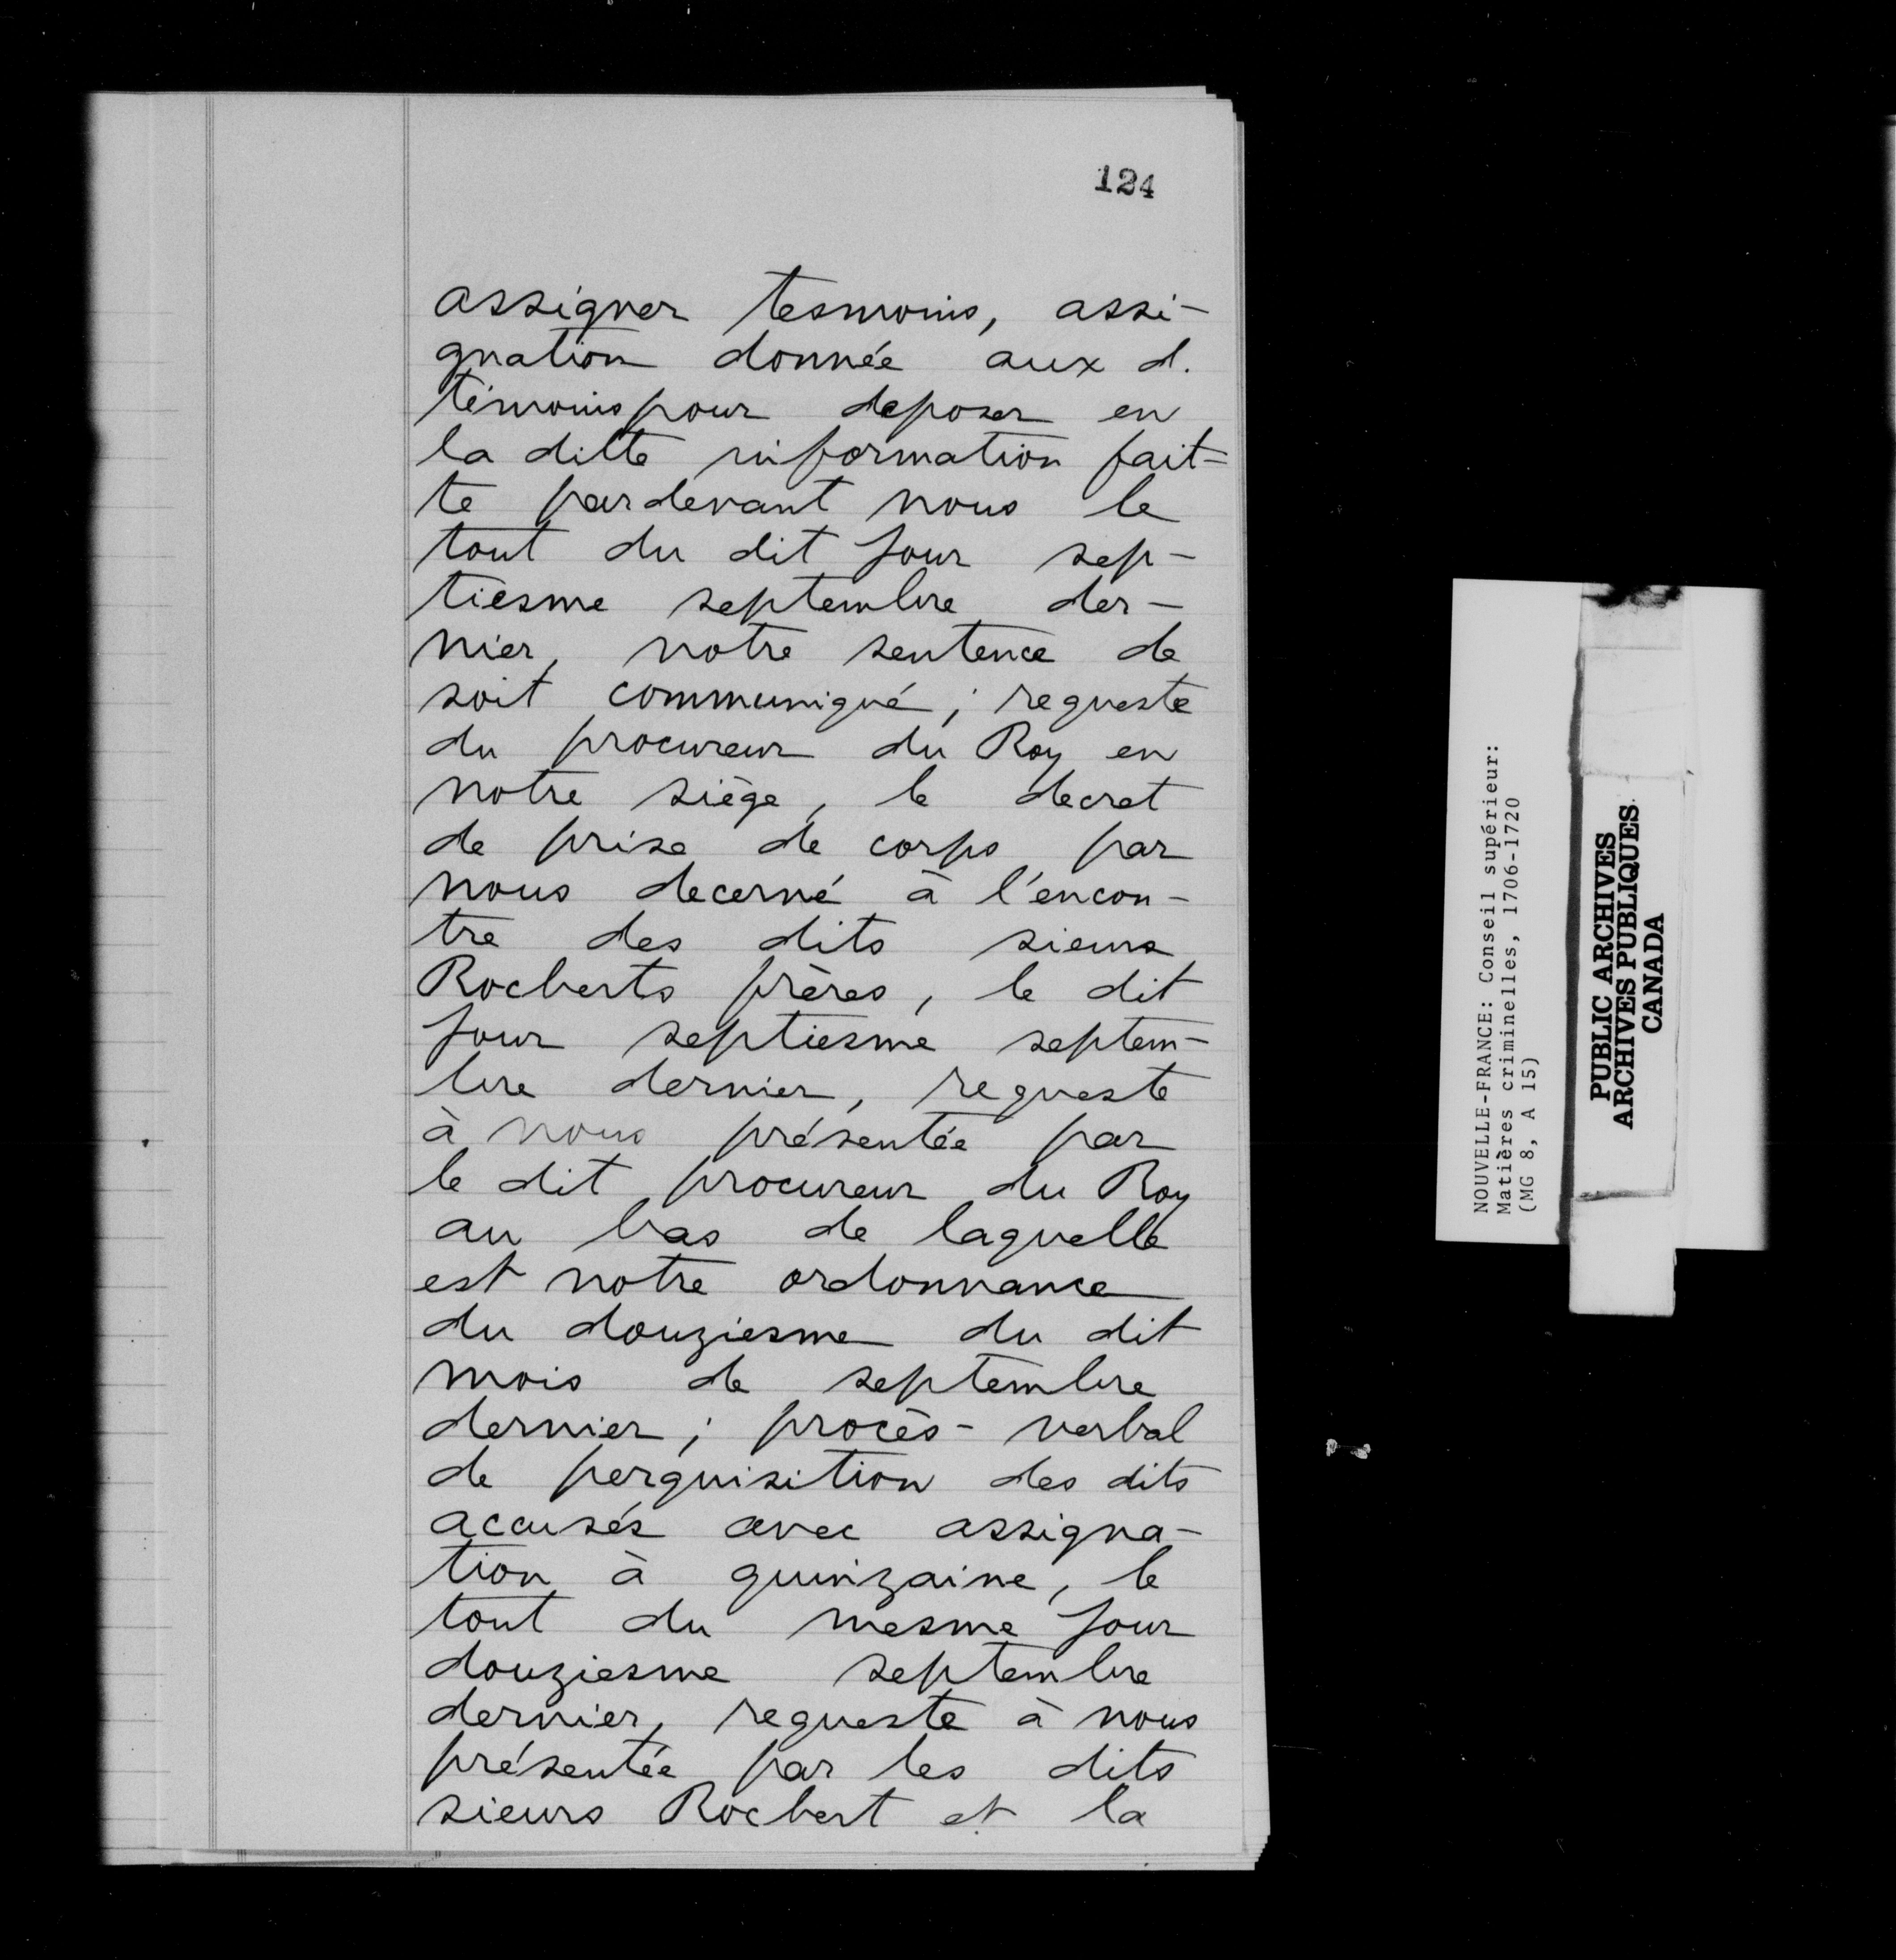 124
assigner tesmoins, assi-
gnation donnée aux d.
témoins pour deposer en
la ditte information fait-
te pardevant nous le
tout du dit jour sep-
tiesme septembre der-
nier, notre sentence de
soit communiqué; requeste
du procureur du Roy en
notre siège, le decret
de prise de corps par
nous decerné à l'encon-
tre des dits sieurs
Rocberts frères, le dit
jour septiesme septem-
bre dernier, requeste
à nous présentée par
le dit procureur du Roy
au bas de laquelle
est notre ordonnance
du douziesme du dit
mois de septembre
dernier; procès-verbal
de perquisition des dits
accusés avec assigna-
tion à quinzaine, le
tout du mesme jour
douziesme septembre
dernier, requeste à nous
présentée par les dits
sieurs Rocbert et la
NOUVELLE-FRANCE: Conseil supérieur:
Matières criminelles, 1706-1720
(MG 8, A 15)
PUBLIC ARCHIVES
ARCHIVES PUBLIQUES
CANADA